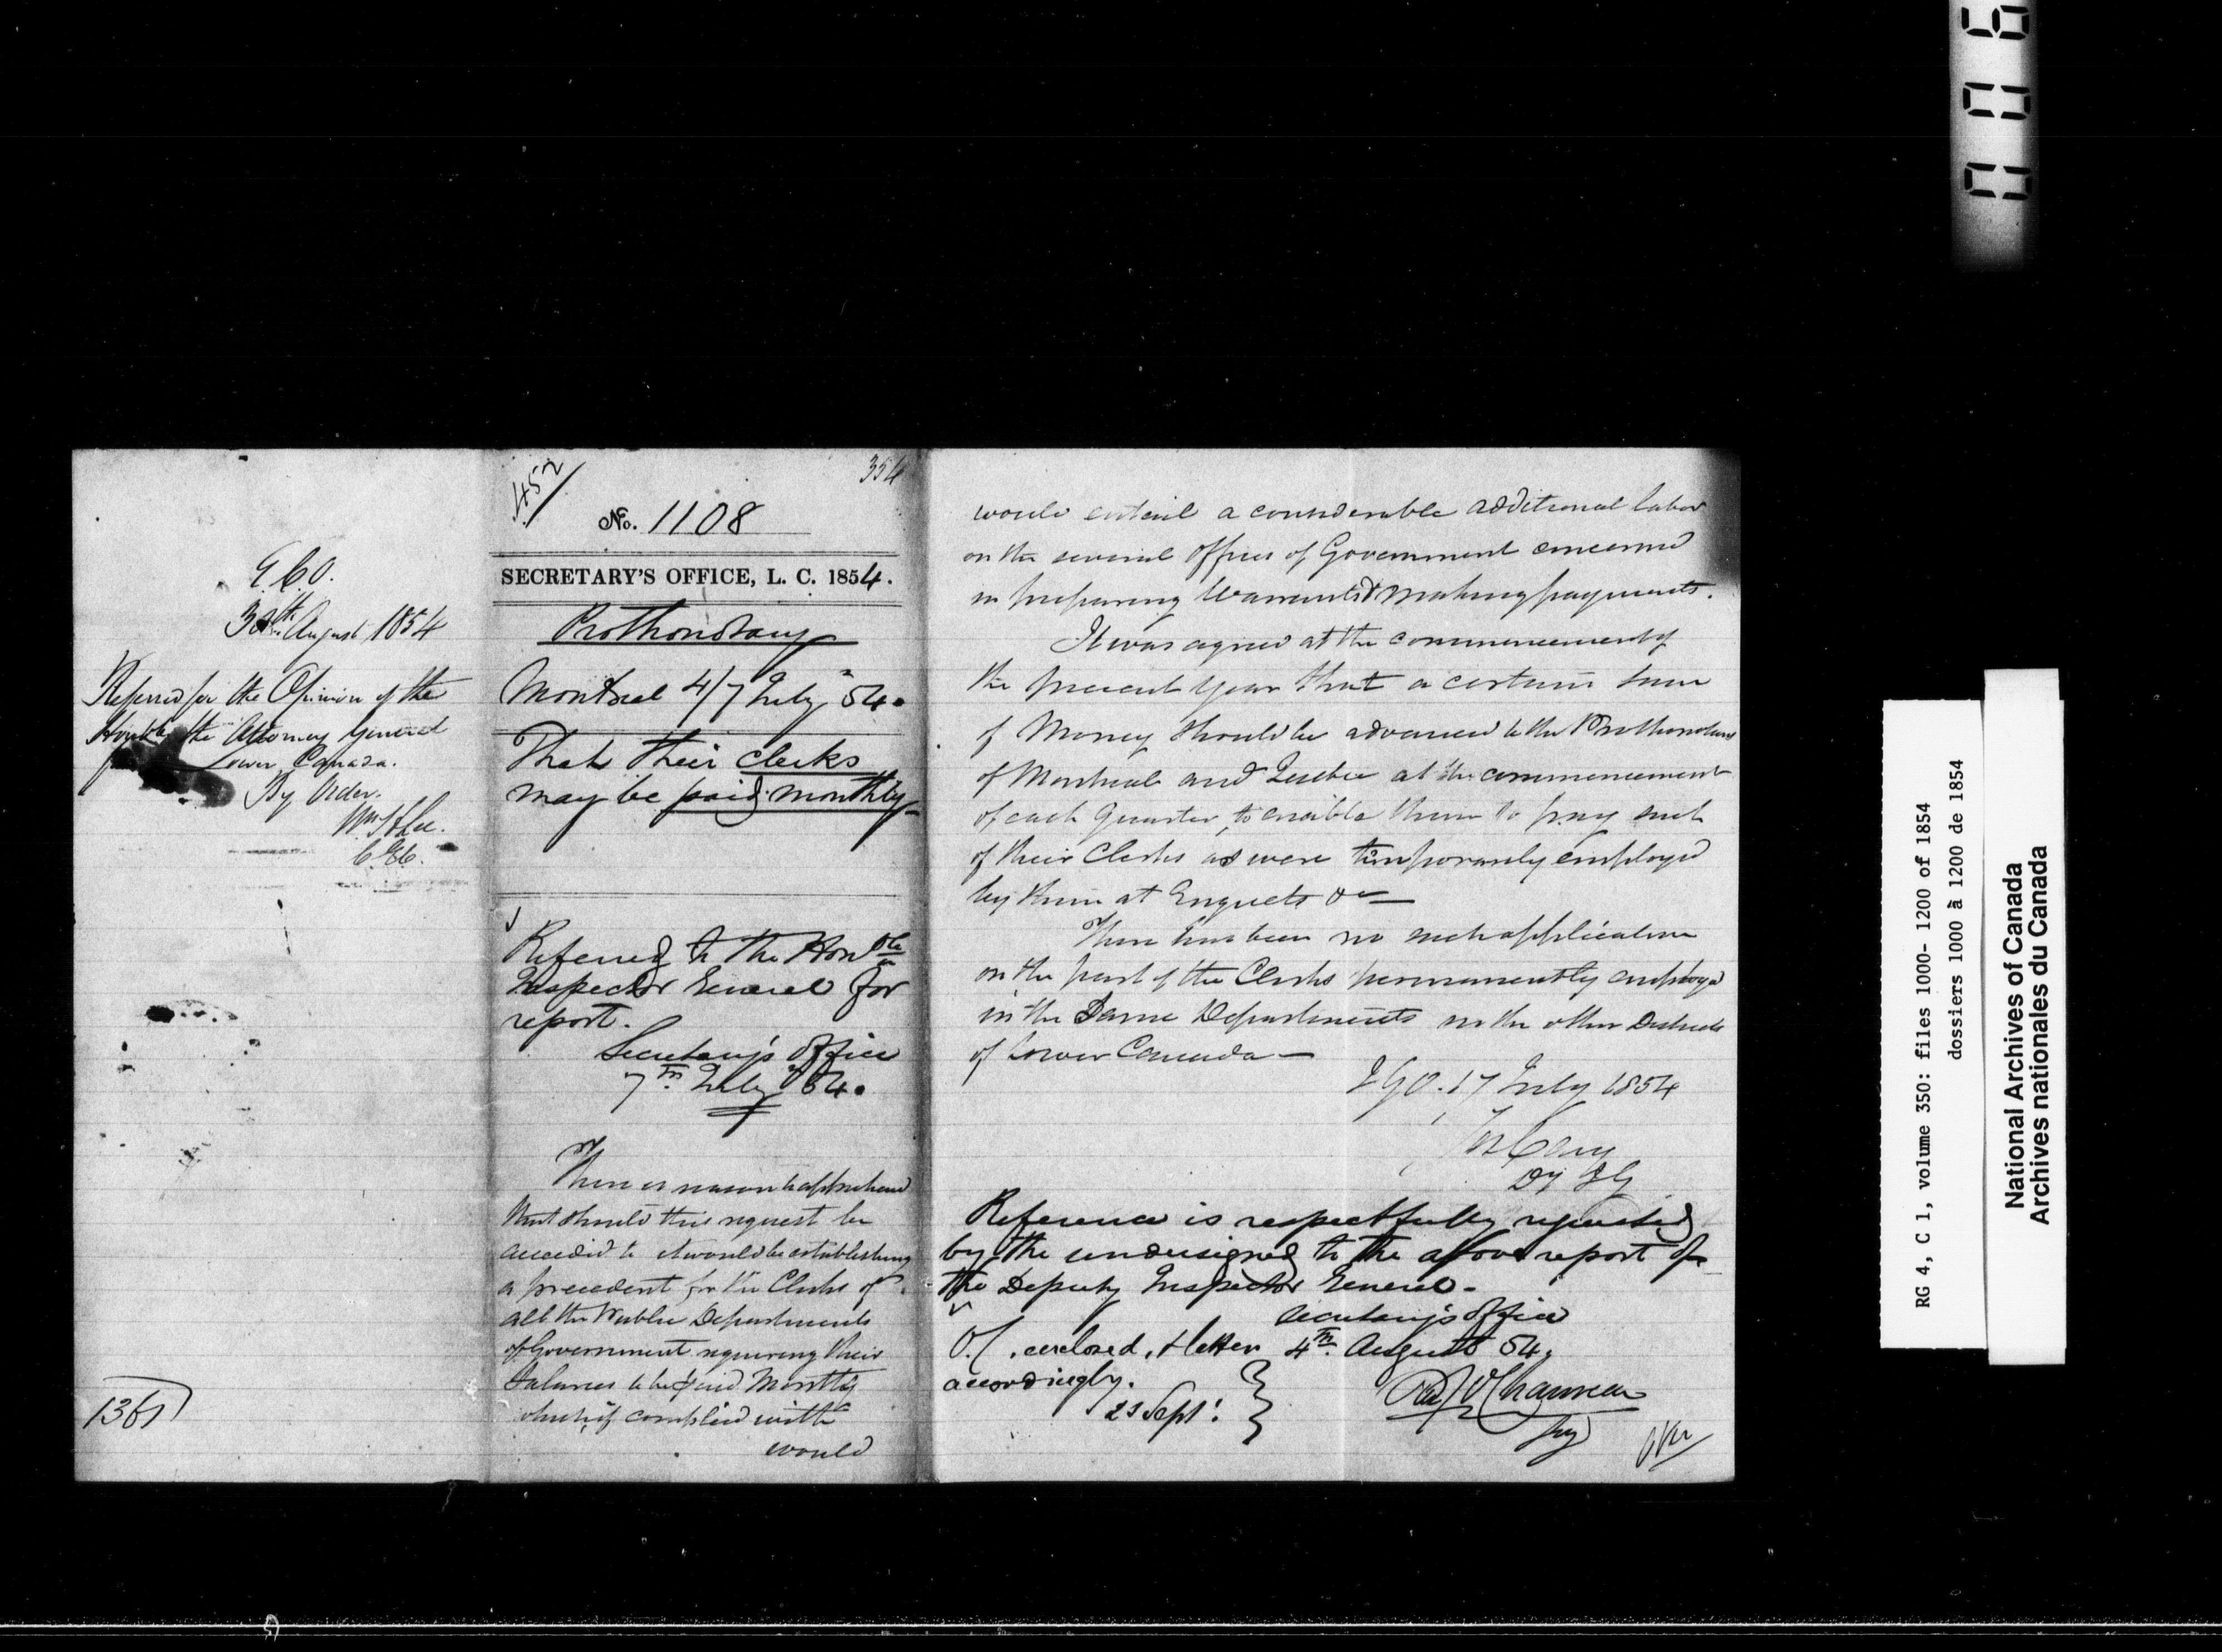 E.C.O.
30th August 1854
Referred for the Opinion of the
Honble the Attorney General
Lower Canada.
By Order.
Wm H Lee.
C.E.C.
1361
452
354
No. 1108
SECRETARY'S OFFICE, L. C. 1854.
Prothonotary
Montreal 4/7 July 54.
That their clerks
may be paid monthly
Referred to the Honble
Inspector General for
report.
Secretary's Office
7th July 54.
There is reason to apprehend
that should this request be
acceded to it would be establishing
a precedent for the Clerks of
all the Public Departments
of Government requiring their
Salaries to be paid Monthly
which if complied with
would
would entail a considerable additional labor
on the several offices of Government concerned
in preparing Warrants & making payments.
It was agreed at the commencement of
the present year that a certain sum
of Money should be advanced to the Prothonotaries
of Montreal and Quebec at the commencement
of each Quarter, to enable them to pay such
of their Clerks as were temporarily employed
by them at Enquets &c
There has been no such application
on the part of the Clerks permanently employed
in the Same Departments in the other Districts
of Lower Canada —
I.G.O. 17 July 1854
Jos Cary
Dy I G
Reference is respectfully requested
by the undersigned to the above report of
the Deputy Inspector General.
Secretary's Office
4th August 54.
O.C. enclosed, & letter
accordingly.
23 Sept.
P J O Chauveau
Sey
0 0 6
RG 4, C 1, volume 350: files 1000- 1200 of 1854
dossiers 1000 à 1200 de 1854
National Archives of Canada
Archives nationales du Canada